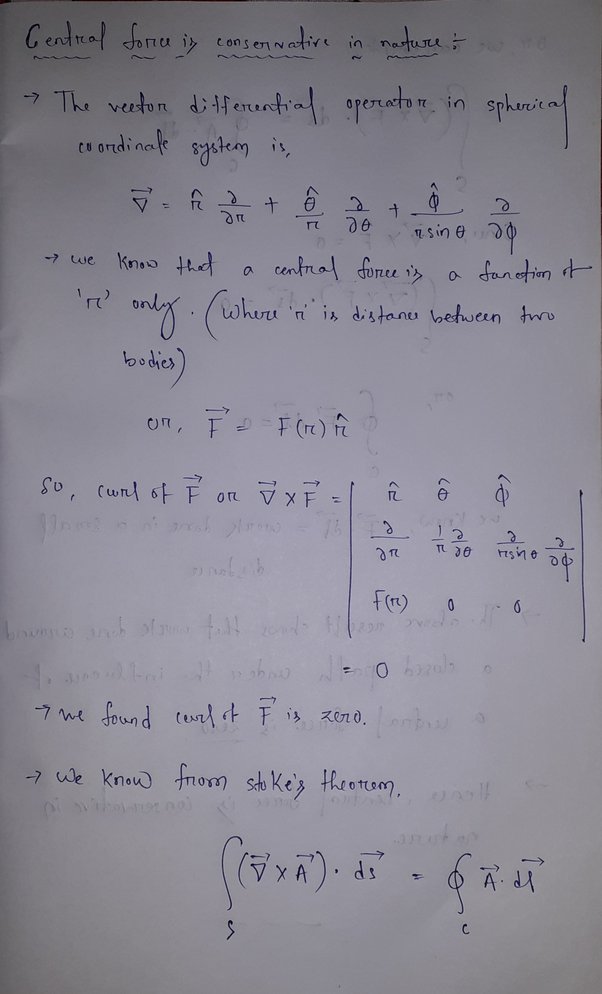 Central force is conservative in nature :-
→ The vector differential operator in spherical
coordinate system is,
∇⃗ = r̂ ∂/∂r + θ̂/r ∂/∂θ + ϕ̂/(r sin θ) ∂/∂ϕ
→ we know that a central force is a function of
'r' only. (Where 'r' is distance between two
bodies)
or, F⃗ = F(r) r̂
So, curl of F⃗ or ∇⃗ × F⃗ = | r̂ θ̂ ϕ̂ |
| ∂/∂r 1/r ∂/∂θ ∂/(r sin θ) ∂/∂ϕ |
| F(r) 0 0 |
= 0
→ we found curl of F⃗ is zero.
→ We know from stoke's theorem,
∫_S (∇⃗ × A⃗) · ds⃗ = ∮_C A⃗ · dl⃗